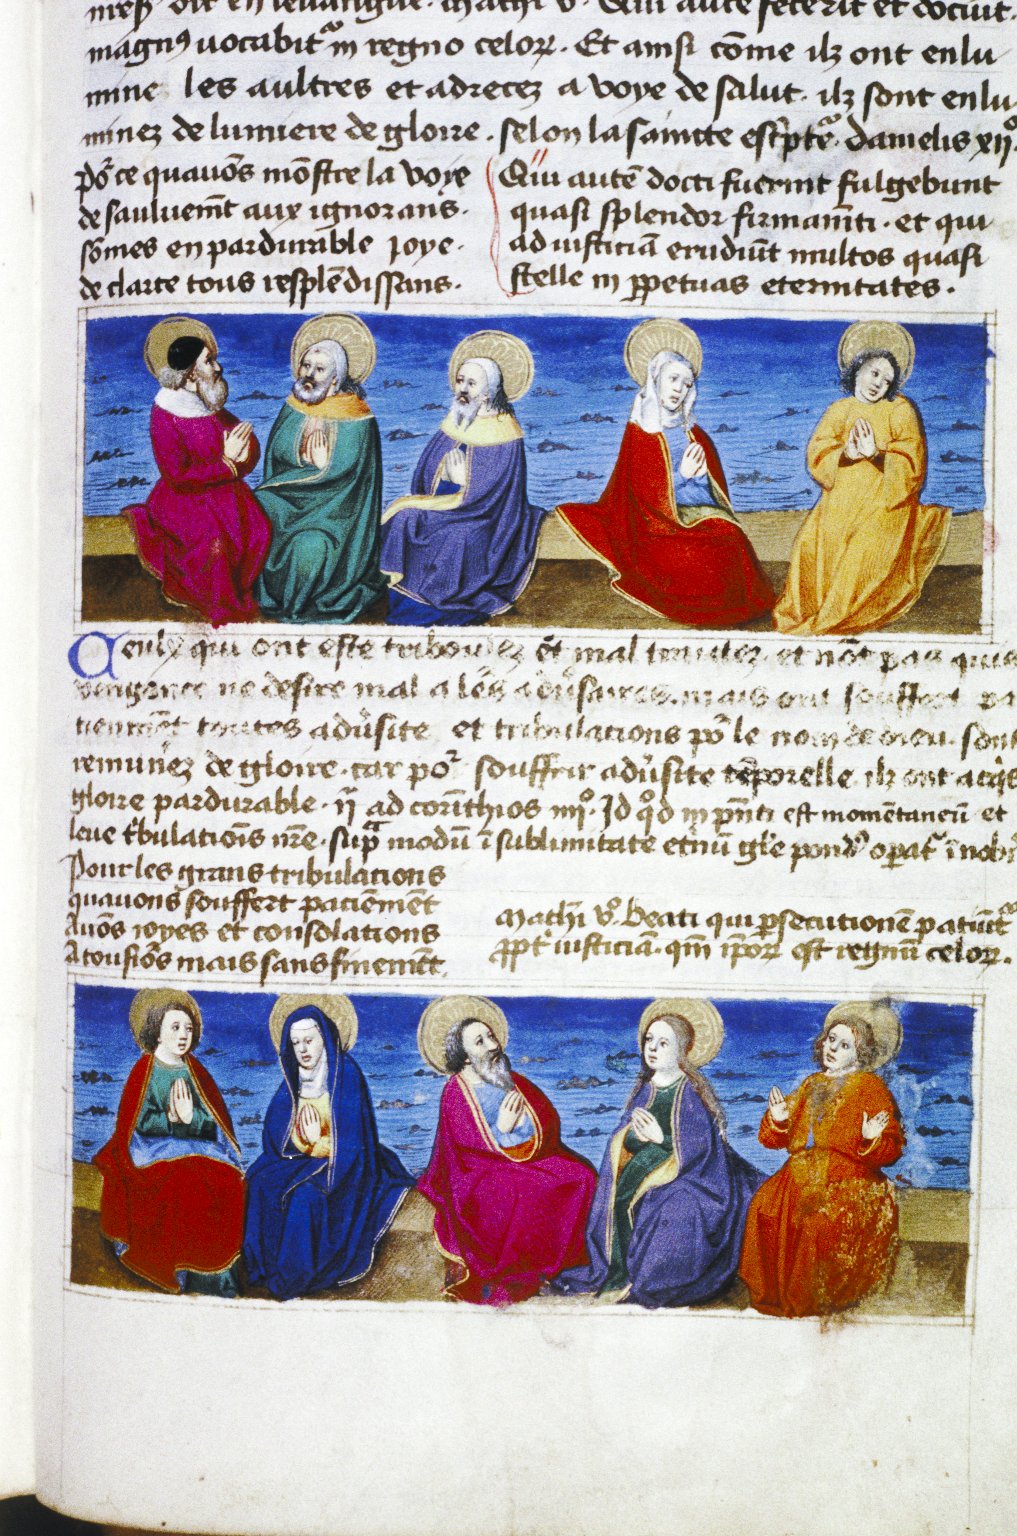 dit en leuangile. Mathi v. Qui aute fecerit et docuit.
magnꝰ uocabitᷓ in regno celoꝝ. Et ainsi cōme ilz ont enlu
mine les aultres et adrecez a voye de salut. ilz sont enlu
minez de lumiere de gloire. selon la saincte escᷓiptᷓe. Danielis xijº.
poᷓ ce quauōs mōstre la voye
de sauluemēt aux ignorans.
sōmes en pardurable ioye.
de clarte tous resplēdissans.
Qui autē docti fuerint fulgebunt
quasi splendor firmamēti. et qui
ad iusticiā erudiūt multos quasi
stelle in ꝑpetuas eternitates.
Ceulx qui ont este triboulez et mal traictez. et nōt pas quis
vengence ne desire mal a leᷓs aduᷓsaires. mais ont souffert pa
tiemmēt toutes aduᷓsite et tribulacions poᷓ le nom de dieu. sont
remuᷓnez de gloire. car poᷓ souffrir aduᷓsite tēporelle. ilz ont acqᷓs
gloire pardurable. ij ad corinthios iiijº. Id qᷓd in pᷓnti est momentaneū et
leue tᷓbulacionis nᷓre. supᷓ modū ī sublimitate etᷓnū glᷓie pondᷓ opᷓatᷓ ī nobᷓ
Pour les grans tribulacions
quauons souffert paciēmēt
Auōs ioyes et consolations
A tousioᷓs mais sans finemēt.
Mathī vº. Beati qui ꝑsecutionē patiūtᷓ
ꝓptᷓ iusticiā. qm̄ ip̄oꝝ est regnū celoꝝ.